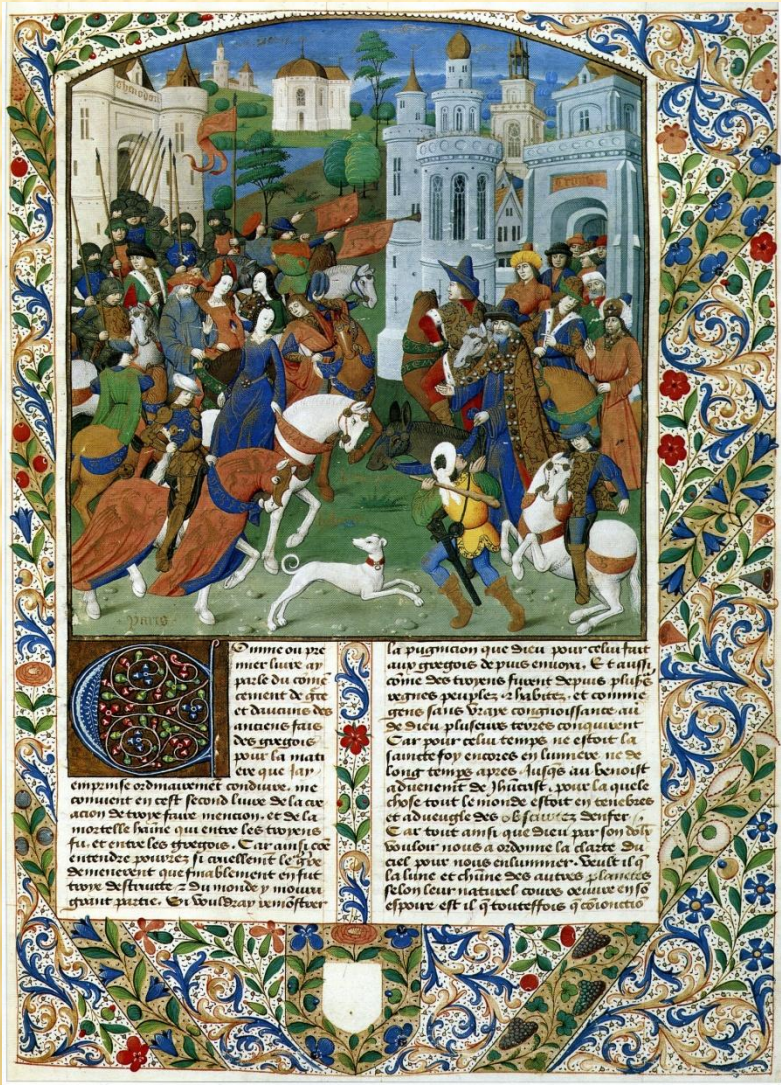 paris
Comme ou pre
mier livre ay
parle du comē
cement de
et daucuns des
anciens fais
des gregois
pour la mati
ere que Jay
emprinse ordinairement conduire. me
convient en cest second livre de la
acion de troye faire mencion. et de la
mortelle haine qui entre les troyens
fu. et entre les gregois. Car ainsi cōe
entendre pourrez si cruellement le
demenerent que finablement en fut
troye destruitte & du monde y mouru
grant partie. Et vouldray remonstrer
la pugnicion que dieu pour celui fait
aux gregois depuis envoya. Et aussi
cōme des troyens furent depuis plus̄s
regnes peuplez & habitez. et comme
gens sans vraye congnoissance
de dieu plusieurs terres conquirent
Car pour celui temps ne estoit la
saincte foy encores en lumiere ne de
long temps apres. Jusqs au benoist
advenemēt de Jhūcrist. pour la quele
chose tout le monde estoit en tenebres
et adveugle des obscurtez denfer
Car tout ainsi que dieu par son
vouloir nous a ordonne la clarte du
ciel pour nous enluminer. Veult il q̄
la lune et chūne des autres planetes
selon leur naturel cours oeuvre en sō
espoire est il q̄ touteffois q̄ cōionctio